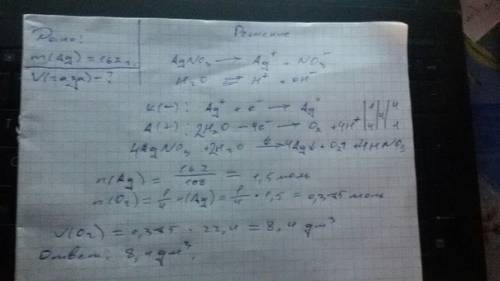 Дано:
Решение
m(Ag) = 162 г.
V(газа) - ?
AgNO₃ → Ag⁺ + NO₃⁻
H₂O ⇄ H⁺ + OH⁻
K(-): Ag⁺ + e⁻ → Ag⁰
A(+): 2H₂O - 4e⁻ → O₂ + 4H⁺ | 1 | 4 | 4
4 | 1
4AgNO₃ + 2H₂O → 4Ag↓ + O₂↑ + 4HNO₃
n(Ag) = 162/108 = 1,5 моль
n(O₂) = 1/4 n(Ag) = 1/4 · 1,5 = 0,375 моль
V(O₂) = 0,375 · 22,4 = 8,4 дм³
Ответ: 8,4 дм³.